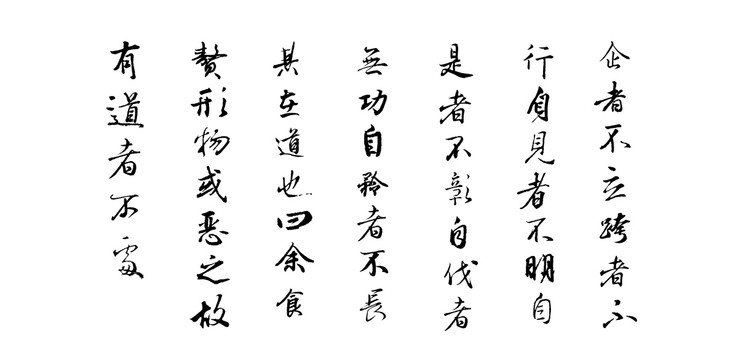 企者不立跨者不
行自見者不明自
是者不彰自伐者
無功自矜者不長
其在道也曰余食
贅形物或惡之故
有道者不處